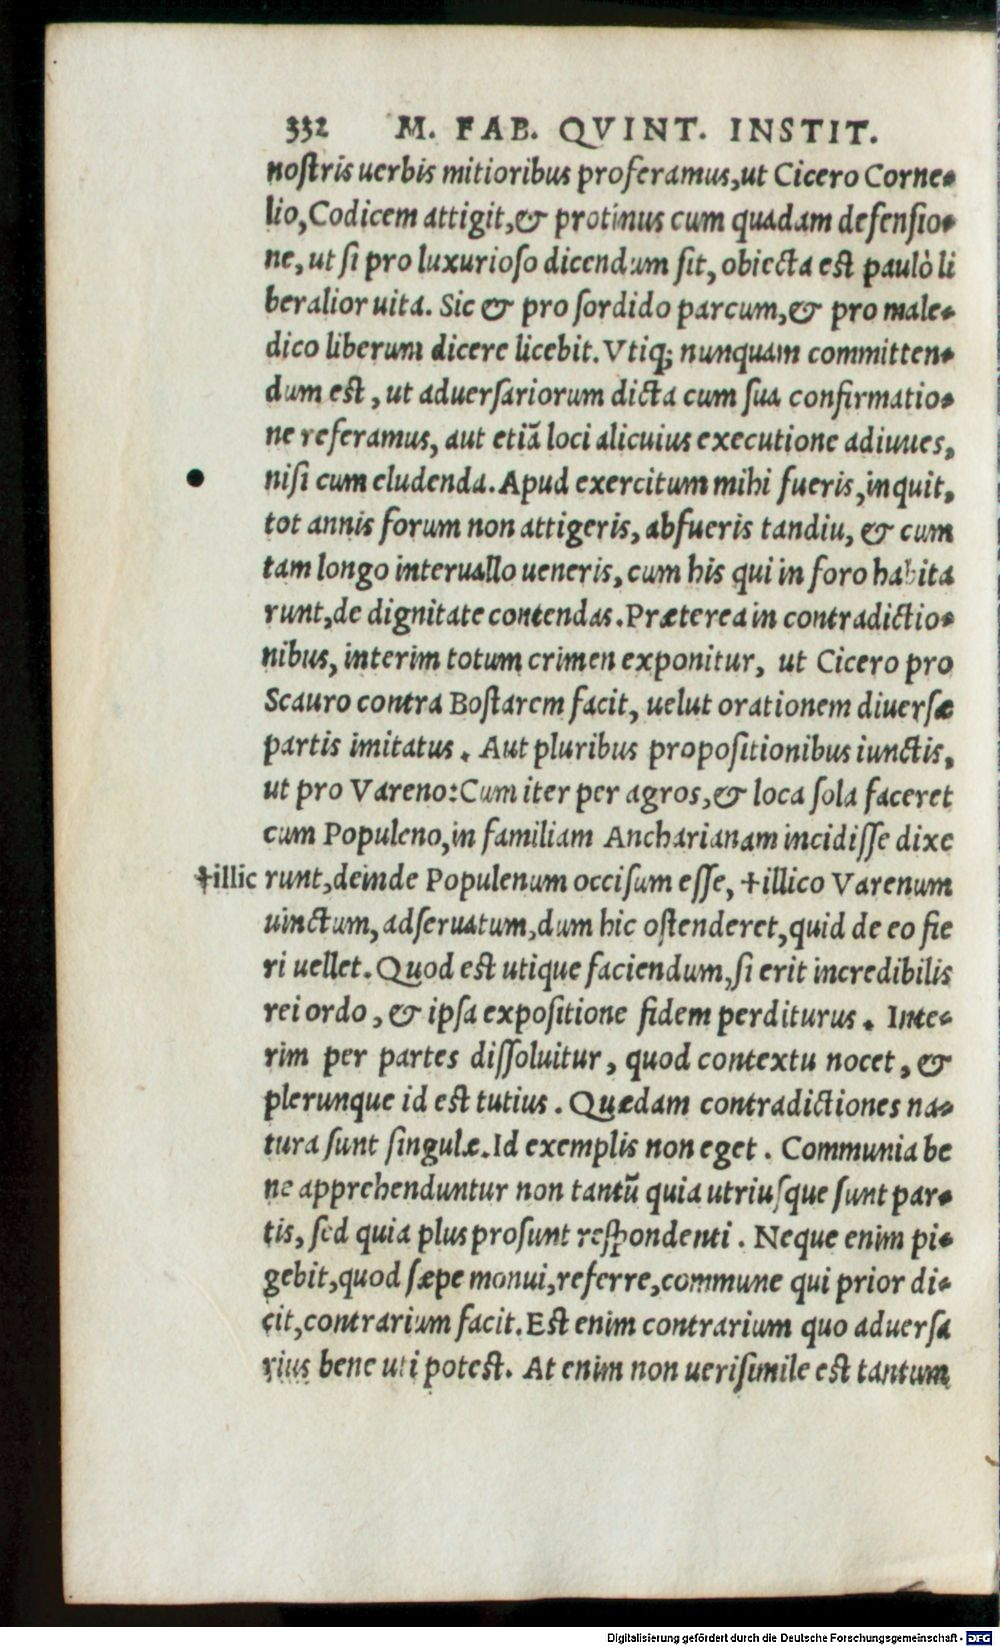 332 M. FAB. QVINT. INSTIT.
nostris uerbis mitioribus proferamus, ut Cicero Corne-
lio, Codicem attigit, & protinus cum quadam defensio-
ne, ut si pro luxurioso dicendum sit, obiecta est paulò li
beralior uita. Sic & pro sordido parcum, & pro male-
dico liberum dicere licebit. Vtiq; nunquam committen-
dum est, ut aduersariorum dicta cum sua confirmatio-
ne referamus, aut etiã loci alicuius executione adiuues,
nisi cum eludenda. Apud exercitum mihi fueris, inquit,
tot annis forum non attigeris, abfueris tandiu, & cum
tam longo interuallo ueneris, cum his qui in foro habita
runt, de dignitate contendas. Præterea in contradictio-
nibus, interim totum crimen exponitur, ut Cicero pro
Scauro contra Bostarem facit, uelut orationem diuersæ
partis imitatus. Aut pluribus propositionibus iunctis,
ut pro Vareno: Cum iter per agros, & loca sola faceret
cum Populeno, in familiam Ancharianam incidisse dixe
†illic runt, deinde Populenum occisum esse, †illico Varenum
uinctum, adseruatum, dum hic ostenderet, quid de eo fie
ri uellet. Quod est utique faciendum, si erit incredibilis
rei ordo, & ipsa expositione fidem perditurus. Inte-
rim per partes dissoluitur, quod contextu nocet, &
plerunque id est tutius. Quædam contradictiones na-
tura sunt singulæ. Id exemplis non eget. Communia be
ne apprehenduntur non tantũ quia utriusque sunt par-
tis, sed quia plus prosunt respondenti. Neque enim pi-
gebit, quod sæpe monui, referre, commune qui prior di-
cit, contrarium facit. Est enim contrarium quo aduersa
rius bene uti potest. At enim non uerisimile est tantum
Digitalisierung gefördert durch die Deutsche Forschungsgemeinschaft - DFG